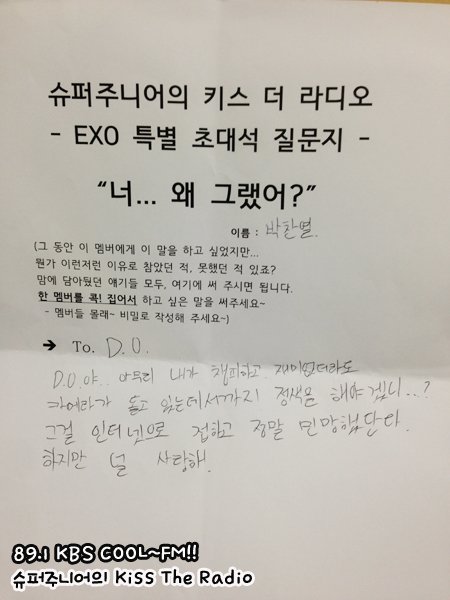 슈퍼주니어의 키스 더 라디오
- EXO 특별 초대석 질문지 -
“너... 왜 그랬어?”
이름 : 박찬열.
(그 동안 이 멤버에게 이 말을 하고 싶었지만...
뭔가 이런저런 이유로 참았던 적, 못했던 적 있죠?
맘에 담아뒀던 얘기들 모두, 여기에 써 주시면 됩니다.
한 멤버를 콕! 집어서 하고 싶은 말을 써주세요~
- 멤버들 몰래~ 비밀로 작성해 주세요~)
➔ To. D.O.
D.O.야.. 아무리 내가 챙피하고 재미없더라도
카메라가 돌고 있는데서까지 정색을 해야겠니..?
그걸 인터넷으로 접하고 정말 민망했단다.
하지만 널 사랑해.
89.1 KBS COOL~FM!!
슈퍼주니어의 Kiss The Radio